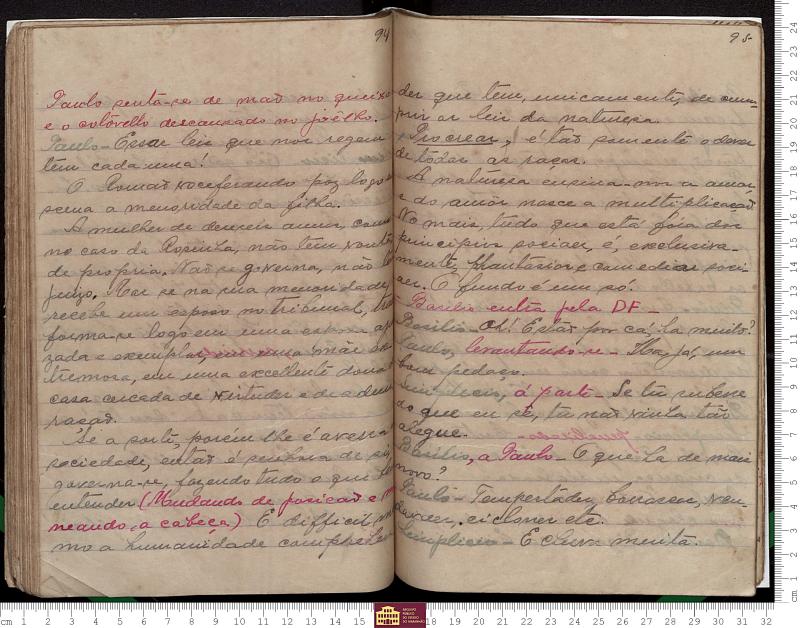 94
Paulo senta-se de mão no queixo
e o cotôvello descansado no joêlho.
Paulo - Essas leis que nos regem
têm cada uma!
O Romão vociferando poz logo
scena a menoridade da filha.
A mulher de deseseis annos, como
no caso da Rosinha, não têm vonta
de propria. Não se governa, não
juizo. Mas se na sua menoridade,
recebe um esposo no tribunal,
forma-se logo em uma esposa
zada e exemplar, em uma mãe ex
tremosa, em uma excellente dona
casa cercada de virtudes e de
ração.
Se a sorte, porém lhe é avessa
sociedade, então é senhora de si,
governa-se, fazendo tudo o que
entender (Mudando de posição e
neando a cabeça) É difficil
mo a humanidade comprehen
95
der que tem, unicamente, de cum-
prir as leis da natureza.
Procrear, é tão sómente o dever
de tôdas as raças.
A natureza ensina-nos a amar
e do amor nasce a multiplicação.
No mais, tudo que está fóra dos
principios sociaes, é, exclusiva-
mente, phantasias e comedias soci-
aes. O fundo é um só.
- Basilio entra pela DF -
Basilio - Oh! Estás por cá, ha muito?
Paulo, levantando-se - Ha, já, um
bom pedaço.
Simplicio, á parte - Se tu soubesse
do que eu sei, tu não vinha tão
alegue.
Basilio, a Paulo - O que ha de mais
novo?
Paulo - Tempestades, borrascas, ven-
davaes, ciclones etc.
Simplicio - E chuva muita.
cm 1 2 3 4 5 6 7 8 9 10 11 12 13 14 15
ARQUIVO PÚBLICO DO ESTADO DO MARANHÃO
18 19 20 21 22 23 24 25 26 27 28 29 30 31 32
cm 1 2 3 4 5 6 7 8 9 10 11 12 13 14 15 16 17 18 19 20 21 22 23 24